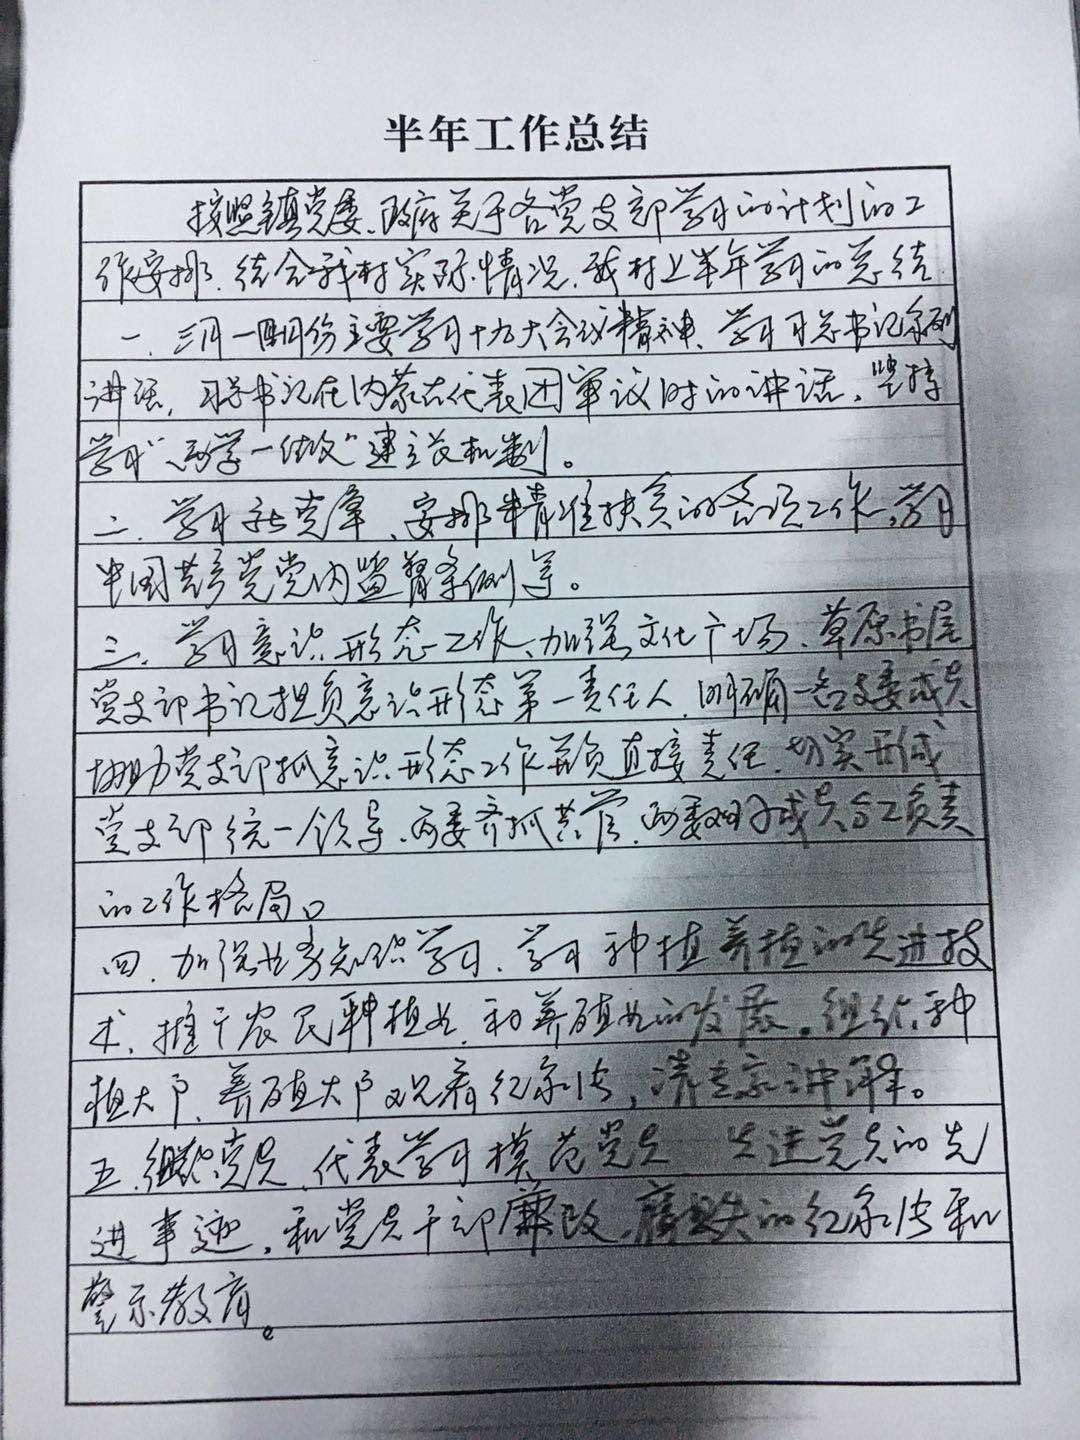 半年工作总结
按照镇党委、政府关于各党支部学习的计划的工
作安排，结合我村实际情况，我村上半年学习的总结
一、三月—四月份主要学习十九大会议精神、学习习总书记系列
讲话，习总书记在内蒙古代表团审议时的讲话，坚持
学习“两学一做”建立长机制。
二、学习新党章、安排精准扶贫的各项工作，学习
中国共产党党内监督条例等。
三、学习意识形态工作、加强文化广场、草原书屋
党支部书记担负意识形态第一责任人，明确一名支委成员
协助党支部抓意识形态工作并负直接责任，切实形成
党支部统一领导、两委齐抓共管，两委班子成员分工负责
的工作格局。
四、加强业务知识学习、学习种植养植的先进技
术，推广农民种植业，和养殖业的发展。组织种
植大户、养殖大户观看纪录片，请专家讲解。
五、组织党员、代表学习模范党员 先进党员的先
进事迹，和党员干部廉政、腐败的纪录片和
警示教育。